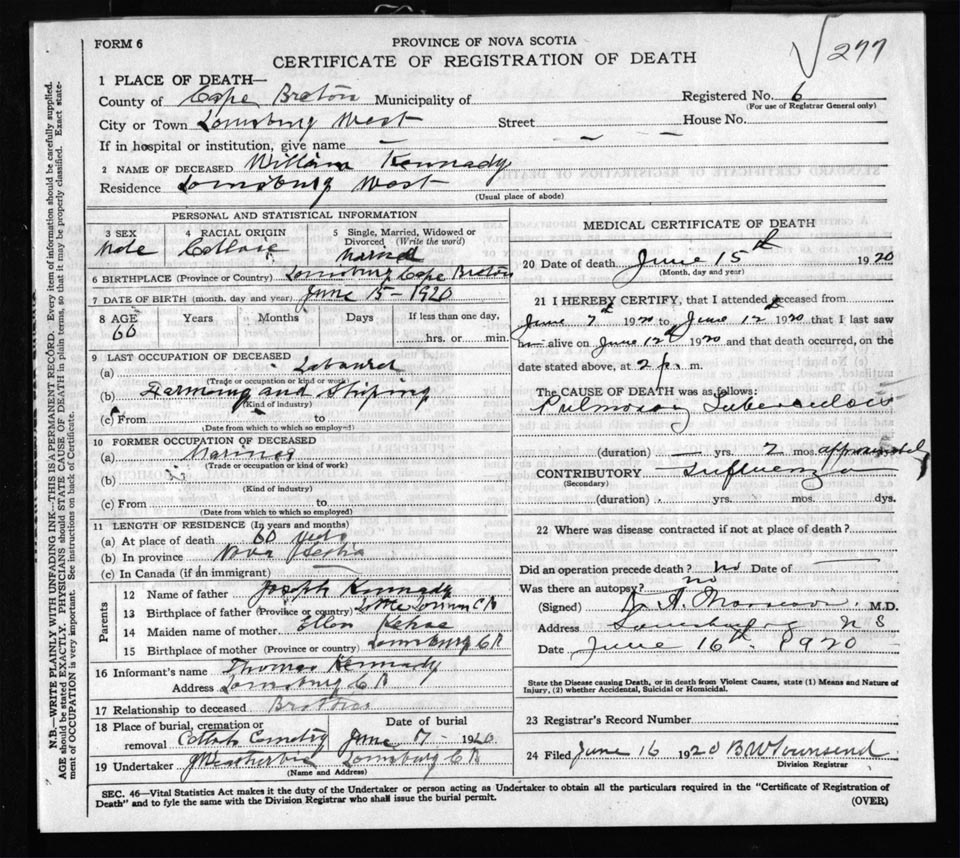 FORM 6
PROVINCE OF NOVA SCOTIA
277
CERTIFICATE OF REGISTRATION OF DEATH
1 PLACE OF DEATH—
County of Cape Breton Municipality of Registered No. 6
(For use of Registrar General only)
City or Town Louisburg West Street House No.
If in hospital or institution, give name —
2 NAME OF DECEASED William Kennady
Residence Louisburg West
(Usual place of abode)
PERSONAL AND STATISTICAL INFORMATION
3 SEX 4 RACIAL ORIGIN 5 Single, Married, Widowed or Divorced (Write the word)
Male
6 BIRTHPLACE (Province or Country) Louisburg Cape Breton
7 DATE OF BIRTH (month, day and year) June 15 - 1920
8 AGE Years Months Days If less than one day,
60 hrs. or min.
9 LAST OCCUPATION OF DECEASED
(a) Labourer
(Trade or occupation or kind of work)
(b) Farming and Shiping
(Kind of industry)
(c) From to
(Date from which to which so employed)
10 FORMER OCCUPATION OF DECEASED
(a) Mariner
(Trade or occupation or kind of work)
(b)
(Kind of industry)
(c) From to
(Date from which to which so employed)
11 LENGTH OF RESIDENCE (In years and months)
(a) At place of death 60
(b) In province Nova Scotia
(c) In Canada (if an immigrant) —
Parents
12 Name of father Joseph Kennady
13 Birthplace of father (Province or country) Little Lorran CB
14 Maiden name of mother Ellen Kehoe
15 Birthplace of mother (Province or country) Louisburg C B
16 Informant's name Thomas Kennady
Address Louisburg C B
17 Relationship to deceased Brother
18 Place of burial, cremation or removal Cemetry
Date of burial June 17 - 1920
19 Undertaker Louisburg C B
(Name and Address)
MEDICAL CERTIFICATE OF DEATH
20 Date of death June 15th 1920
(Month, day and year)
21 I HEREBY CERTIFY, that I attended deceased from
June 7th 1920 to June 12th 1920 that I last saw
alive on June 12th 1920 and that death occurred, on the
date stated above, at 2 p. m.
The CAUSE OF DEATH was as follows:
Pulmonary Tuberculosis
(duration) — yrs. 2 mos. approximately
CONTRIBUTORY Influenza
(Secondary)
(duration) yrs. mos. dys.
22 Where was disease contracted if not at place of death?
Did an operation precede death? no Date of —
Was there an autopsy? no
(Signed) M.D.
Address Louisburg N S
Date June 16th 1920
State the Disease causing Death, or in death from Violent Causes, state (1) Means and Nature of
Injury, (2) whether Accidental, Suicidal or Homicidal.
23 Registrar's Record Number
24 Filed June 16 1920 B W Townsend
Division Registrar
SEC. 46—Vital Statistics Act makes it the duty of the Undertaker or person acting as Undertaker to obtain all the particulars required in the "Certificate of Registration of
Death" and to fyle the same with the Division Registrar who shall issue the burial permit. (OVER)
N.B.—WRITE PLAINLY WITH UNFADING INK—THIS IS A PERMANENT RECORD. Every item of information should be carefully supplied.
AGE should be stated EXACTLY. PHYSICIANS should STATE CAUSE OF DEATH in plain terms, so that it may be properly classified. Exact state-
ment of OCCUPATION is very important. See instructions on back of Certificate.